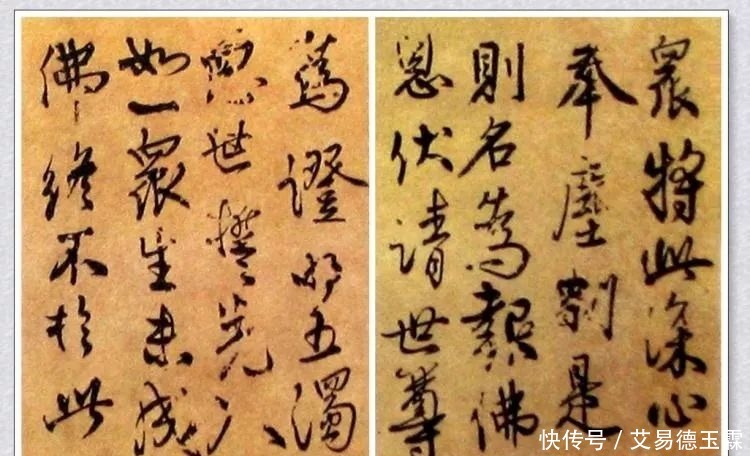 眾將此深心
奉塵刹是
則名為報佛
恩伏請世尊
為證明五濁
惡世誓先入
如一眾生未成
佛終不於此
快传号／艾易德玉霖